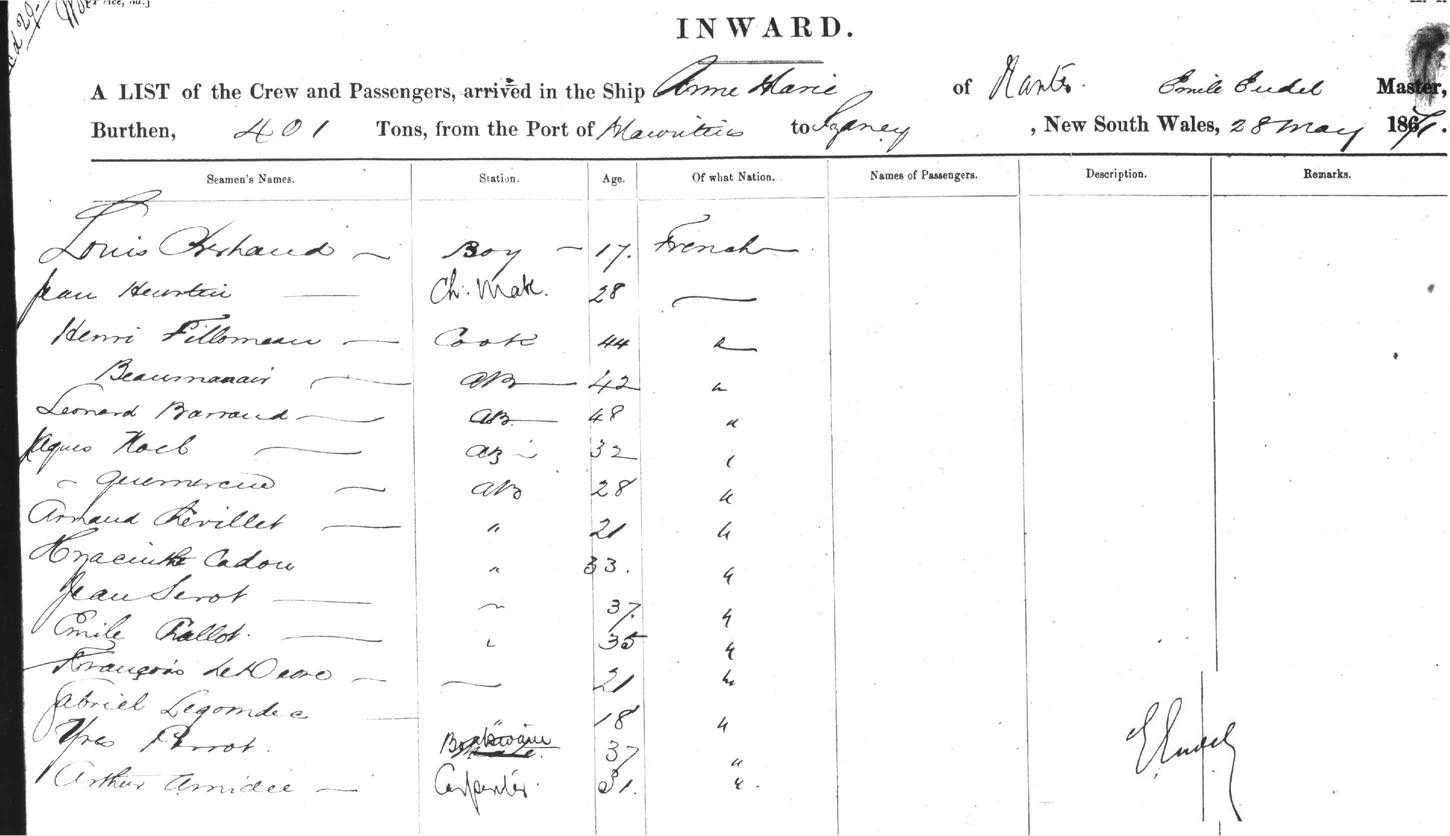 INWARD.
A LIST of the Crew and Passengers, arrived in the Ship Anne Marie of Nantes. Emile Eudel Master,
Burthen, 401 Tons, from the Port of Mauritius to Sydney, New South Wales, 28 May 1861.
Seamen's Names. Station. Age. Of what Nation. Names of Passengers. Description. Remarks.
Louis — Boy — 17. French
Jean — Ch. Mate. 28 —
Henri — Cook 44 "
Beaumanair — AB — 42 "
Leonard Barraud — AB — 48 "
Jaques Noel — AB 32 "
" — AB 28 "
Arnaud Revillet — " 21 "
Hyacinthe Cadou " 33. "
Jean Serot — " 37 "
Emile Rallot. — " 35 "
François — — 21 "
Gabriel — 18 "
Yves Perrot. 37 "
Arthur Amidée — Carpenter. 31. "
E Eudel